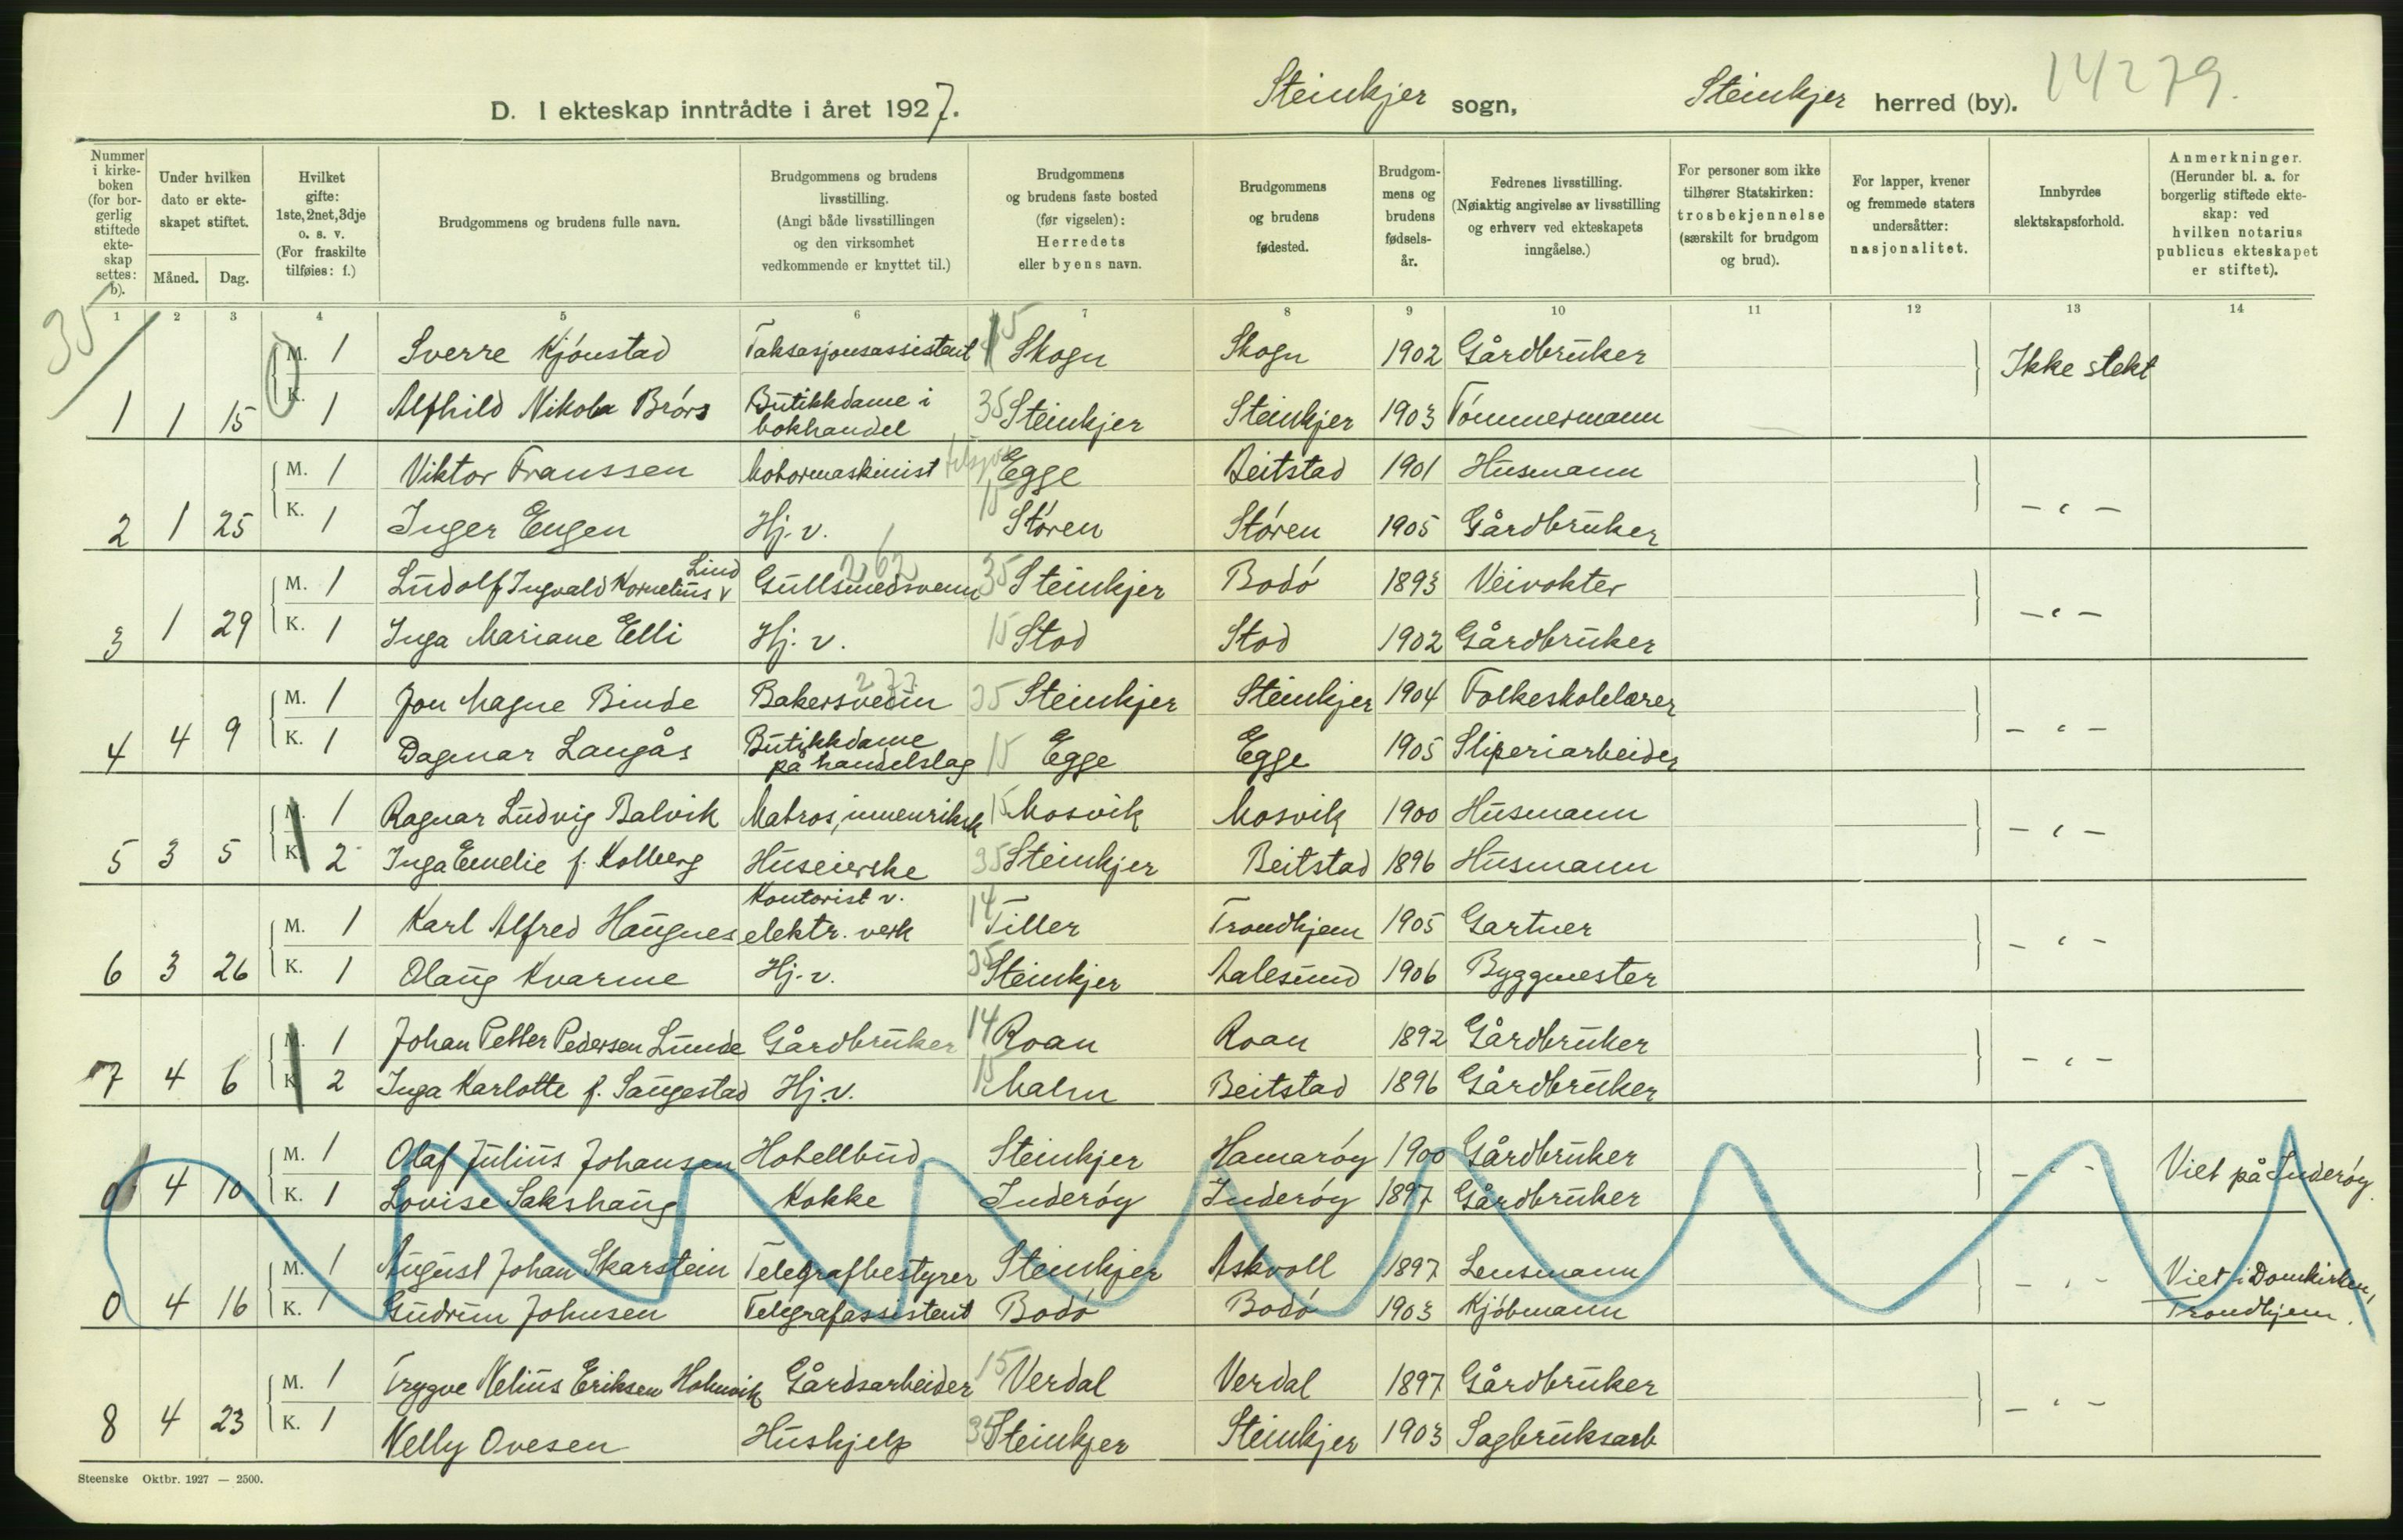 14279.
D. I ekteskap inntrådte i året 1927. Steinkjer sogn, Steinkjer herred (by).
Nummer i kirke-boken (for bor-gerlig stiftede ekte-skap settes: b).
Under hvilken dato er ekte-skapet stiftet.
Måned. Dag.
Hvilket gifte: 1ste, 2net, 3dje o. s. v. (For fraskilte tilføies: f.)
Brudgommens og brudens fulle navn.
Brudgommens og brudens livsstilling. (Angi både livsstillingen og den virksomhet vedkommende er knyttet til.)
Brudgommens og brudens faste bosted (før vigselen): Herredets eller byens navn.
Brudgommens og brudens fødested.
Brudgom-mens og brudens fødsels-år.
Fedrenes livsstilling. (Nøiaktig angivelse av livsstilling og erhverv ved ekteskapets inngåelse.)
For personer som ikke tilhører Statskirken: trosbekjennelse (særskilt for brudgom og brud).
For lapper, kvener og fremmede staters undersåtter: nasjonalitet.
Innbyrdes slektskapsforhold.
Anmerkninger. (Herunder bl. a. for borgerlig stiftede ekte-skap: ved hvilken notarius publicus ekteskapet er stiftet).
1 2 3 4 5 6 7 8 9 10 11 12 13 14
35
M. 1 Sverre Kjønstad Taksasjonsassistent 15 Skogn Skogn 1902 Gårdbruker Ikke slekt
1 1 15 K. 1 Alfhild Nikola Brørs Butikkdame i bokhandel 35 Steinkjer Steinkjer 1903 Tømmermann
M. 1 Viktor Franssen Motormaskinist Egge Beitstad 1901 Husmann
2 1 25 K. 1 Inger Engen Hj. v. 15 Støren Støren 1905 Gårdbruker - " -
M. 1 Ludolf Ingvald Kornelius v Lind Gullsmedsvenn 35 Steinkjer Bodø 1893 Veivokter
3 1 29 K. 1 Inga Mariane Elli Hj. v. 15 Stod Stod 1902 Gårdbruker - " -
M. 1 Jon Magne Binde Bakersvenn 277 35 Steinkjer Steinkjer 1904 Folkeskolelærer
4 4 9 K. 1 Dagmar Langås Butikkdame på handelslag 15 Egge Egge 1905 Sliperiarbeider - " -
M. 1 Ragnar Ludvig Balvik Matros, innenriksk 15 Mosvik Mosvik 1900 Husmann
5 3 5 K. 2 Inga Emelie f. Kolberg Huseierske 35 Steinkjer Beitstad 1896 Husmann - " -
M. 1 Karl Alfred Haugnes Kontorist v. elektr. verk 14 Tiller Trondhjem 1905 Gartner
6 3 26 K. 1 Olaug Kvarme Hj. v. 35 Steinkjer Aalesund 1906 Byggmester - " -
M. 1 Johan Petter Pedersen Lunde Gårdbruker 14 Roan Roan 1892 Gårdbruker
7 4 6 K. 2 Inga Karlotte f. Saugestad Hj. v. 15 Malm Beitstad 1896 Gårdbruker - " -
M. 1 Olaf Julius Johansen Hotellbud Steinkjer Hamarøy 1900 Gårdbruker
0 4 10 K. 1 Lovise Sakshaug Kokke Inderøy Inderøy 1897 Gårdbruker - " - Viet på Inderøy.
M. 1 August Johan Skarstein Telegrafbestyrer Steinkjer Askvoll 1897 Lensmann
0 4 16 K. 1 Gudrun Johnsen Telegrafassistent Bodø Bodø 1903 Kjøbmann - " - Viet i Domkirken, Trondhjem.
M. 1 Trygve Nelius Eriksen Holmvik Gårdsarbeider 15 Verdal Verdal 1897 Gårdbruker
8 4 23 K. 1 Nelly Ovesen Hushjelp 35 Steinkjer Steinkjer 1903 Sagbruksarb - " -
Steenske Oktbr. 1927 — 2500.